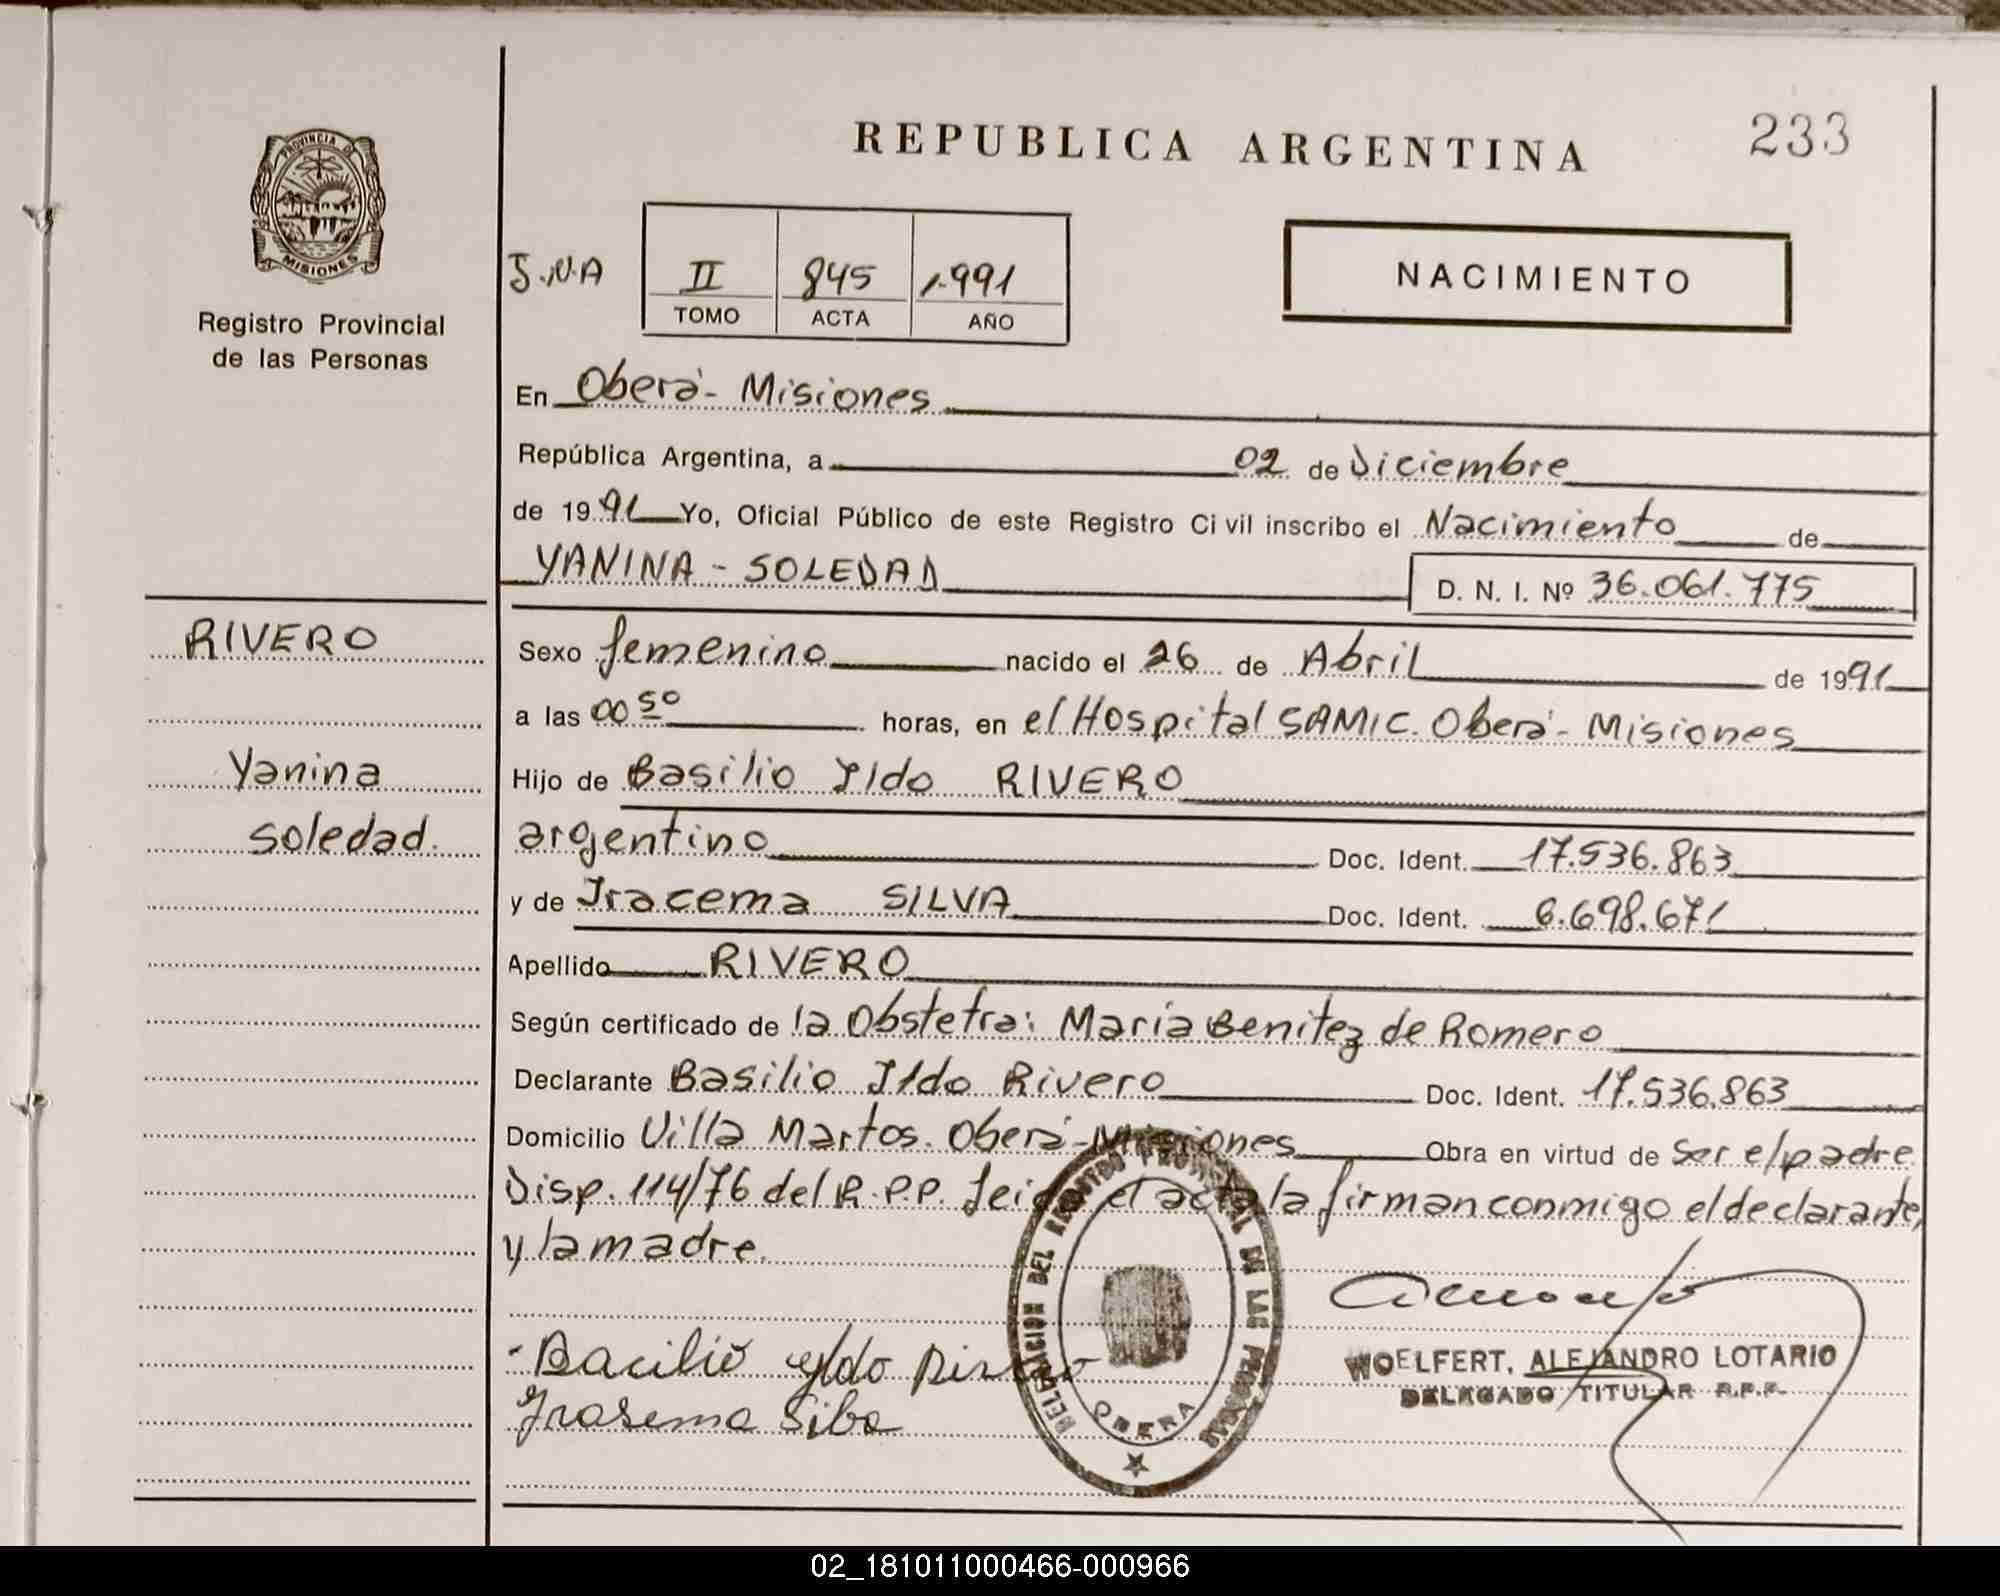 REPUBLICA ARGENTINA
233
PROVINCIA DE
MISIONES
Registro Provincial
de las Personas
J.N.A
II 845 1.991
TOMO ACTA AÑO
NACIMIENTO
En Oberá - Misiones
República Argentina, a 02 de Diciembre
de 1991 Yo, Oficial Público de este Registro Civil inscribo el Nacimiento de
YANINA - SOLEDAD D. N. I. Nº 36.061.775
RIVERO
Yanina
Soledad.
Sexo femenino nacido el 26 de Abril de 1991
a las 00 50 horas, en el Hospital SAMIC. Oberá - Misiones
Hijo de Basilio Ildo RIVERO
argentino Doc. Ident. 17.536.863
y de Iracema SILVA Doc. Ident. 6.698.671
Apellido RIVERO
Según certificado de la Obstetra: María Benitez de Romero
Declarante Basilio Ildo Rivero Doc. Ident. 17.536.863
Domicilio Villa Martos. Oberá - Misiones Obra en virtud de Ser el padre
Disp. 114/76 del R.P.P. leida el acta la firman conmigo el declarante,
y la madre.
DELEGACION DEL REGISTRO PROVINCIAL DE LAS PERSONAS
OBERA
Bacilio yldo
WOELFERT, ALEJANDRO LOTARIO
DELEGADO TITULAR R.P.P.
02_181011000466-000966